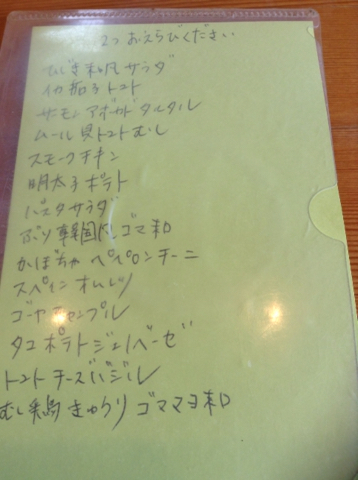 2つおえらびください
ひじき和風サラダ
イカ茄子トマト
サーモンアボカドタルタル
ムール貝トマトむし
スモークチキン
明太子ポテト
パスタサラダ
ぶり韓国風ゴマ和
かぼちゃペペロンチーニ
スペインオムレツ
ゴーヤチャンプル
タコポテトジェノベーゼ
トマトチーズバジル
むし鶏きゅうりゴママヨ和